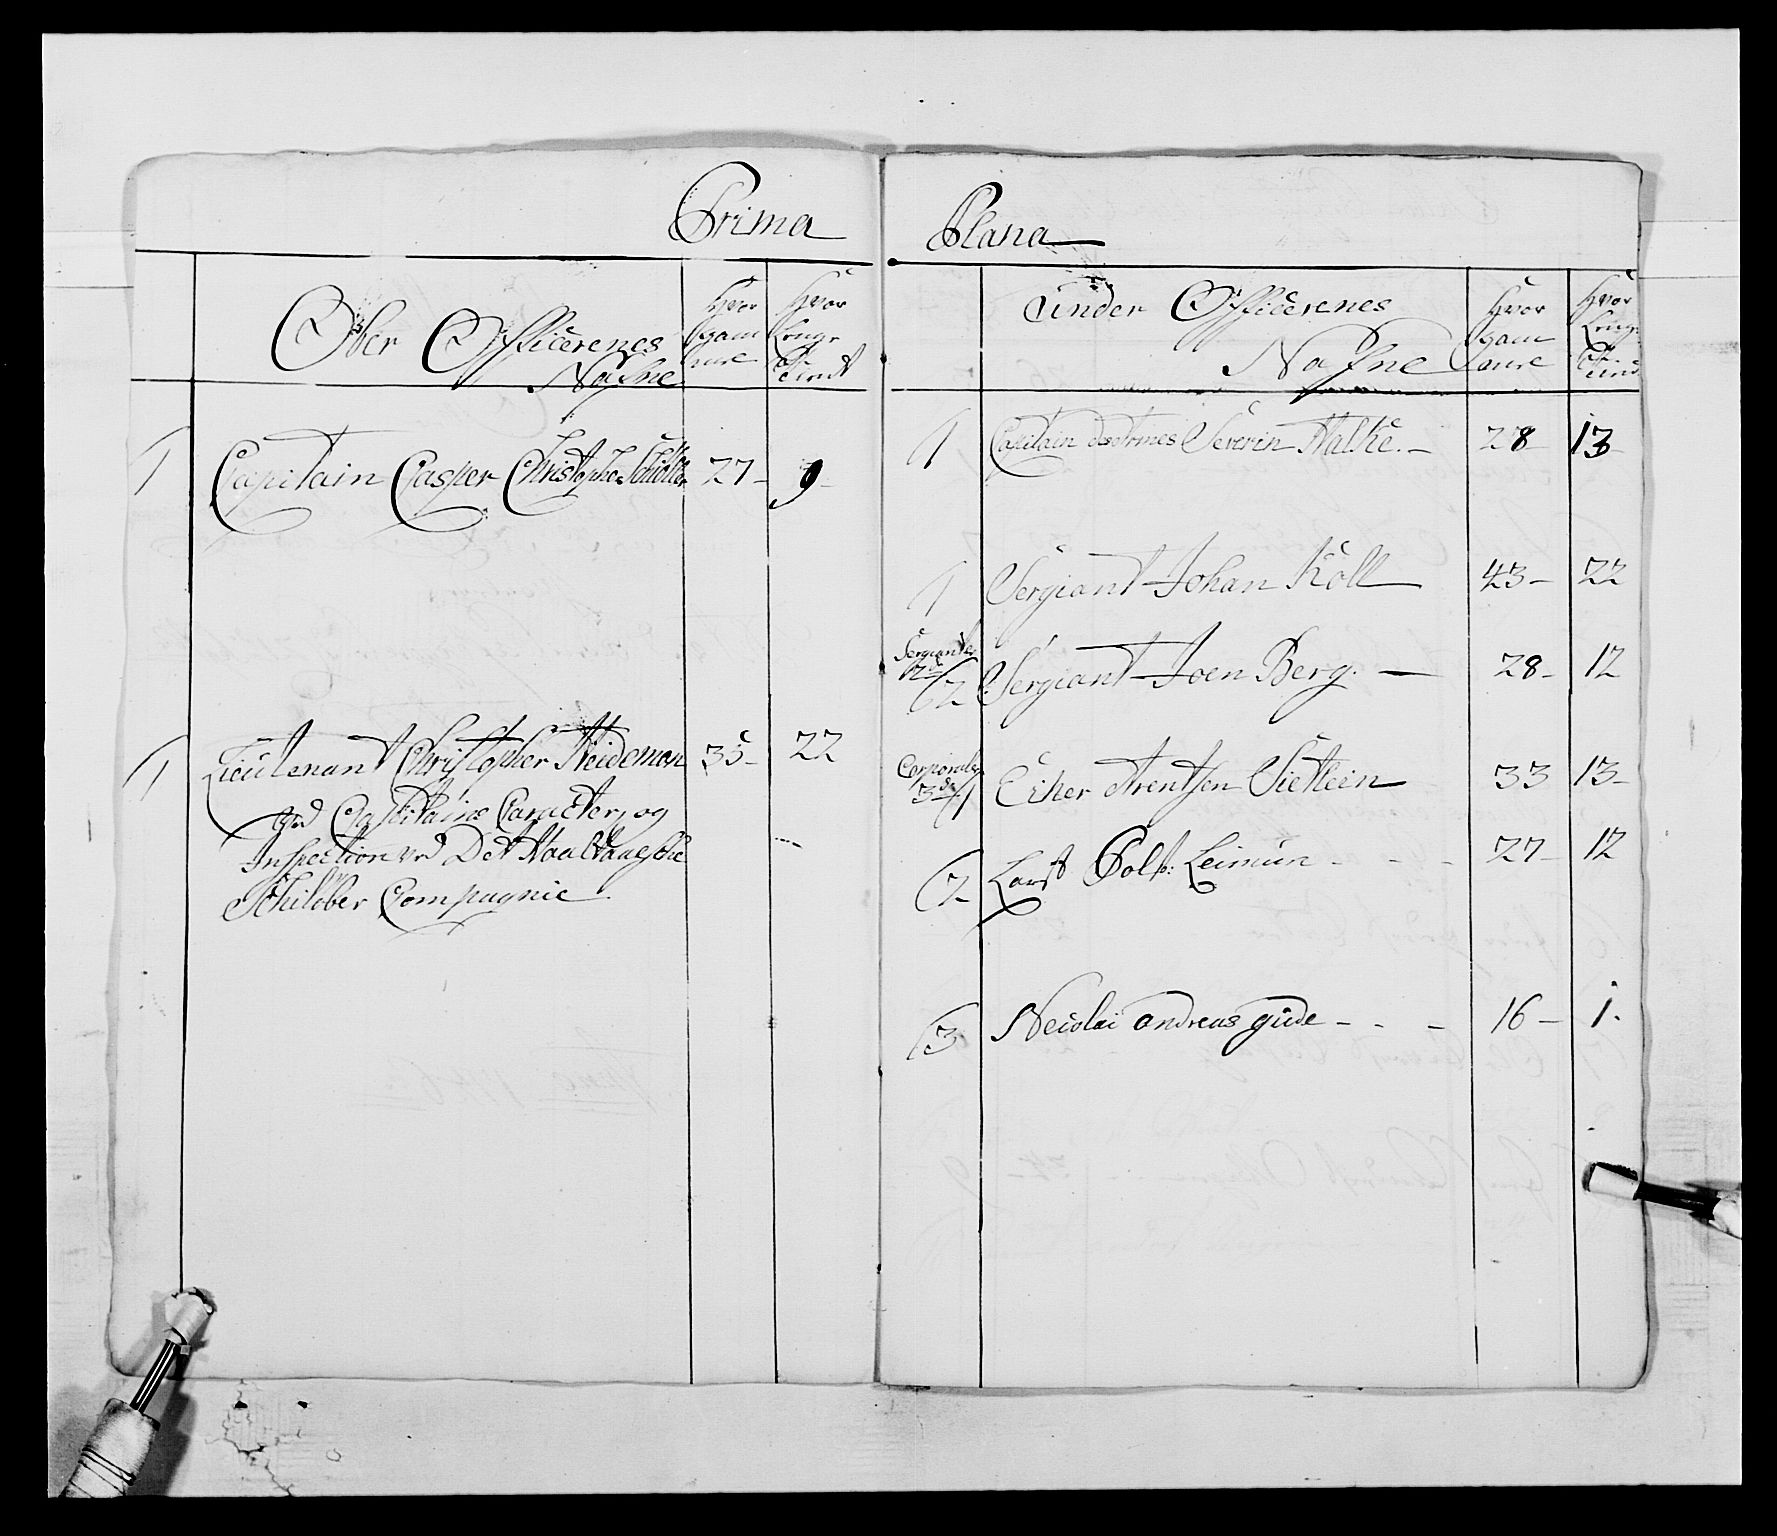 Prima Plana
Ober Officerenes
Nafne
Hvor
gam
mel
Hvor
Lenge
tient
1 Capitain Casper Christopher Schøller 27 - 9 -
1 Lieutenant Christopher Heideman 35 - 22
Capitains Caracter, og
Inspection ved Det
Schilober Compagnie
Under Officerenes
Nafne
Hvor
gam
mel
Hvor
Leng
tient
1 Capitain desArmes Severin Halke. - 28 - 13
1 Sergiant Johan Köll 43 - 22
Sergianter
2de
2 Sergiant Joen Berg. - 28 - 12
Corporaler
3de
1 Eiler Arentsen Sietlein 33 13 -
2 Lars Colb: Leimun - - - 27 - 12
3 Necolai andreas gude - - - 16 - 1.